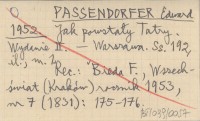 O PASSENDORFER Edward
1952. Jak powstały Tatry.
Wydanie II. – Warszawa. Ss. 192,
il., m. 2
Rec.: Breda F., Wszech-
świat (Kraków) rocznik 1953,
nr 7 (1831): 175-176.